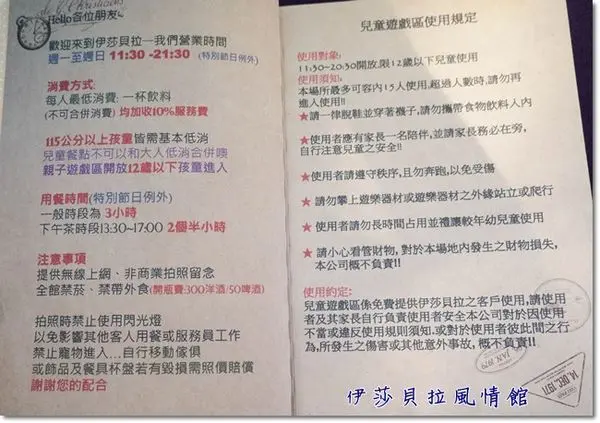 Hello各位朋友
歡迎來到伊莎貝拉—我們營業時間
週一至週日 11:30 -21:30 (特別節日例外)
消費方式:
每人最低消費: 一杯飲料
(不可合併消費) 均加收10%服務費
115公分以上孩童 皆需基本低消
兒童餐點不可以和大人低消合併噢
親子遊戲區開放12歲以下孩童進入
用餐時間(特別節日例外)
一般時段為 3小時
下午茶時段13:30~17:00 2個半小時
注意事項
提供無線上網、非商業拍照留念
全館禁菸、禁帶外食(開瓶費:300洋酒/50啤酒)
拍照時禁止使用閃光燈
以免影響其他客人用餐或服務員工作
禁止寵物進入...自行移動傢俱
或飾品及餐具杯盤若有毀損需照價賠償
謝謝您的配合
兒童遊戲區使用規定
使用對象:
11:30~20:30開放,限12歲以下兒童使用
使用須知:
本場所最多可容內15人使用,超過人數時,請勿再
進入使用!!
★請一律脫鞋並穿著襪子,請勿攜帶食物飲料入內
★使用者應有家長一名陪伴,並請家長務必在旁,
自行注意兒童之安全!!
★使用者請遵守秩序,且勿奔跑,以免受傷
★請勿攀上遊樂器材或遊樂器材之外緣站立或爬行
★使用者請勿長時間占用並禮讓較年幼兒童使用
★請小心看管財物, 對於本場地內發生之財物損失,
本公司概不負責!!
使用約定:
兒童遊戲區係免費提供伊莎貝拉之客戶使用,請使用
者及其家長自行負責使用者安全本公司對於因使用
不當或違反使用規則須知.或對於使用者彼此間之行
為,所發生之傷害或其他意外事故, 概不負責!!
JAN 1979
14. DEC. 1971
伊莎貝拉風情館